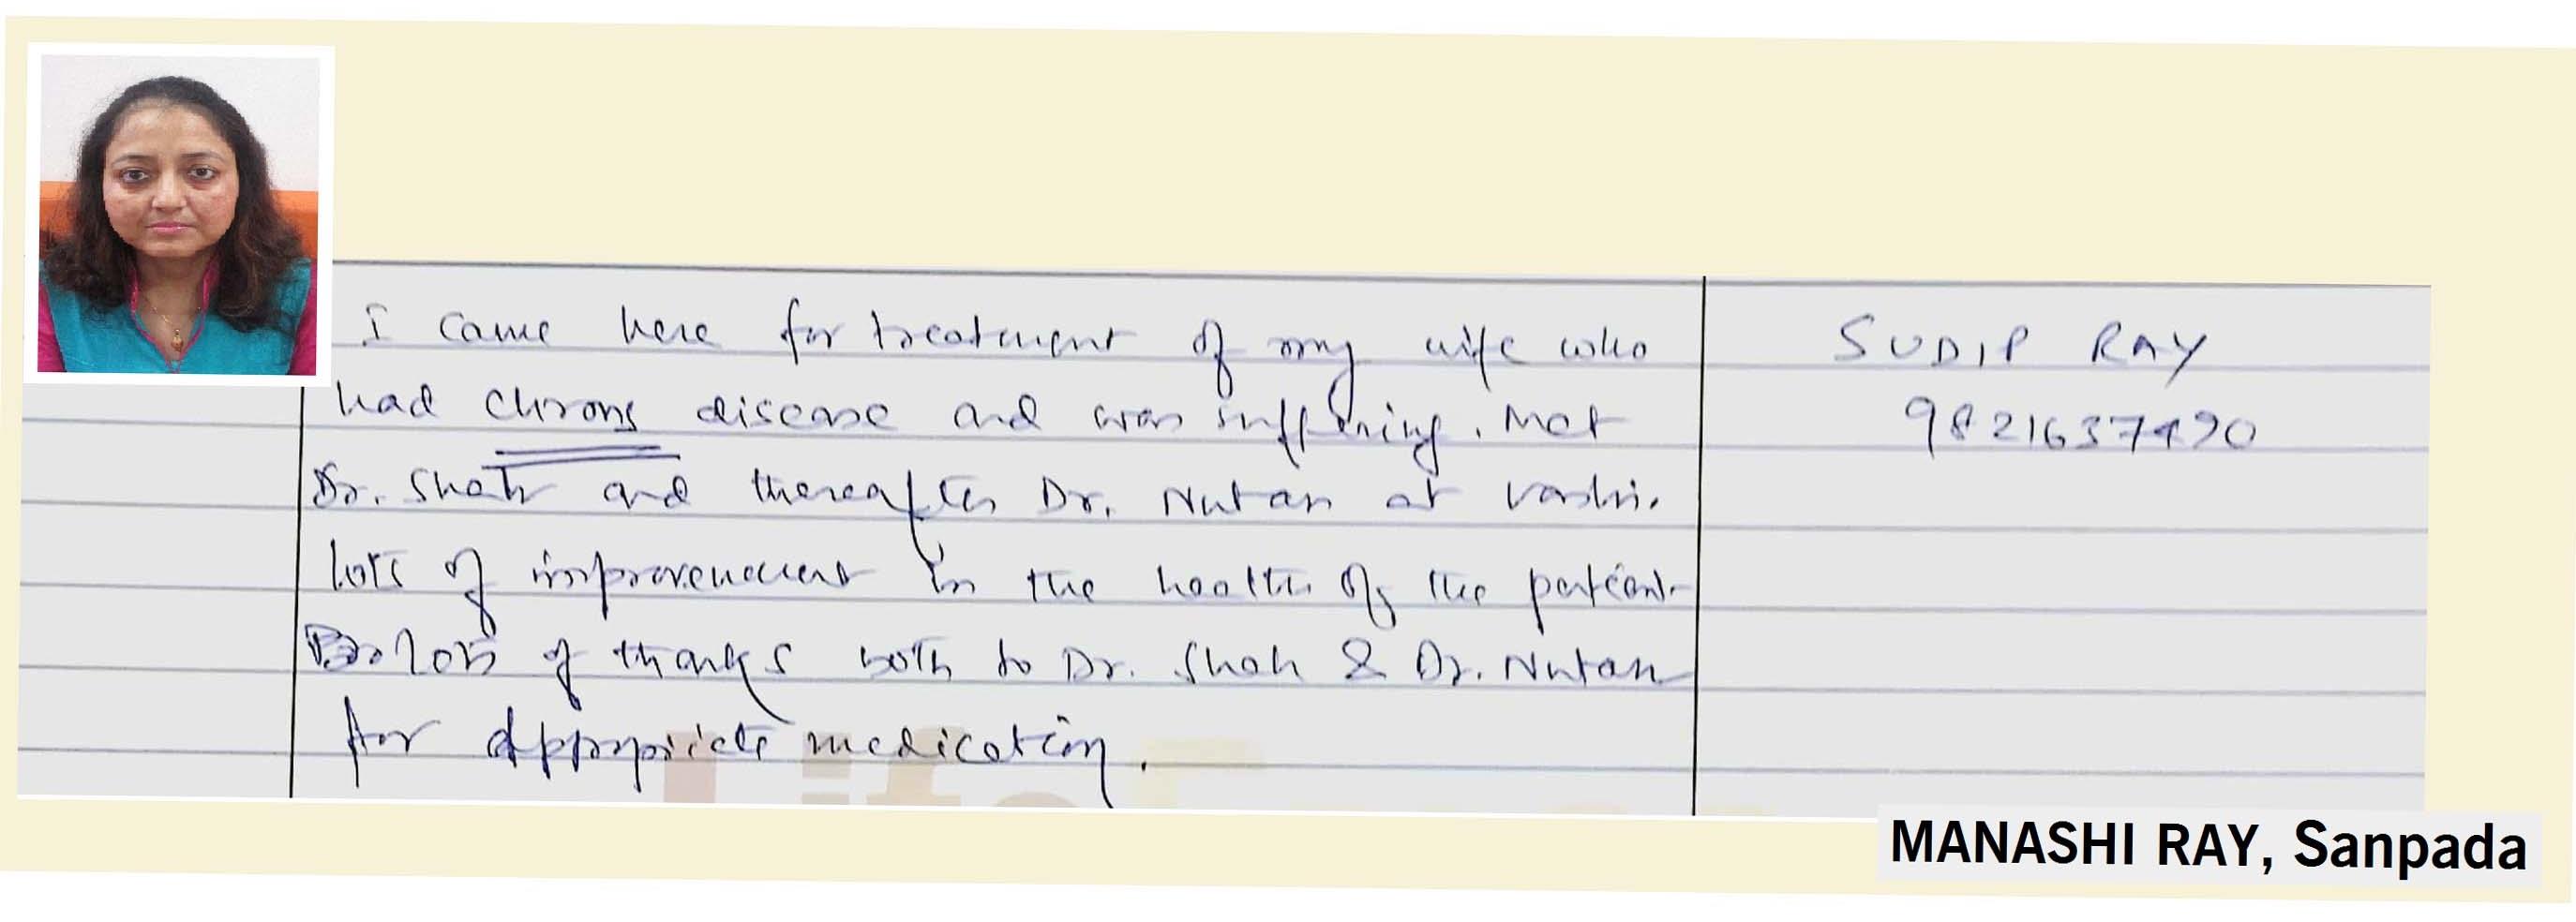 I came here for treatment of my wife who
had chrons disease and was suffering. Met
Dr. Shah and thereafter Dr. Nutan at vashi.
lots of improvement in the health of the patient.
lots of thanks both to Dr. Shah & Dr. Nutan
for appropriate medication.
SUDIP RAY
MANASHI RAY, Sanpada